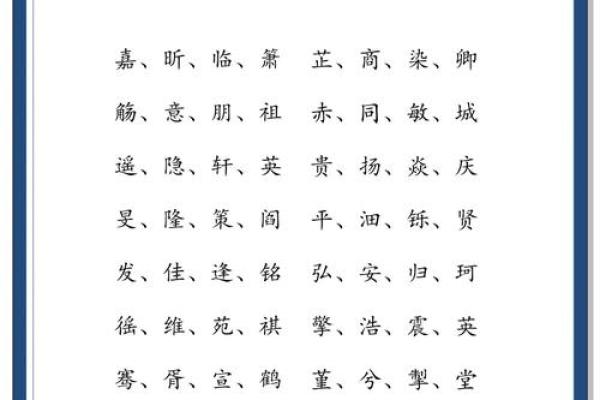 嘉、昕、临、箫 芷、商、染、卿
觞、意、朋、祖 赤、同、敏、城
遥、隐、轩、英 贵、扬、焱、庆
旻、隆、策、阎 平、沺、铄、贤
发、佳、逢、铭 弘、安、归、珂
徭、维、苑、祺 擎、浩、震、英
骞、胥、宣、鹤 堇、兮、掣、堂